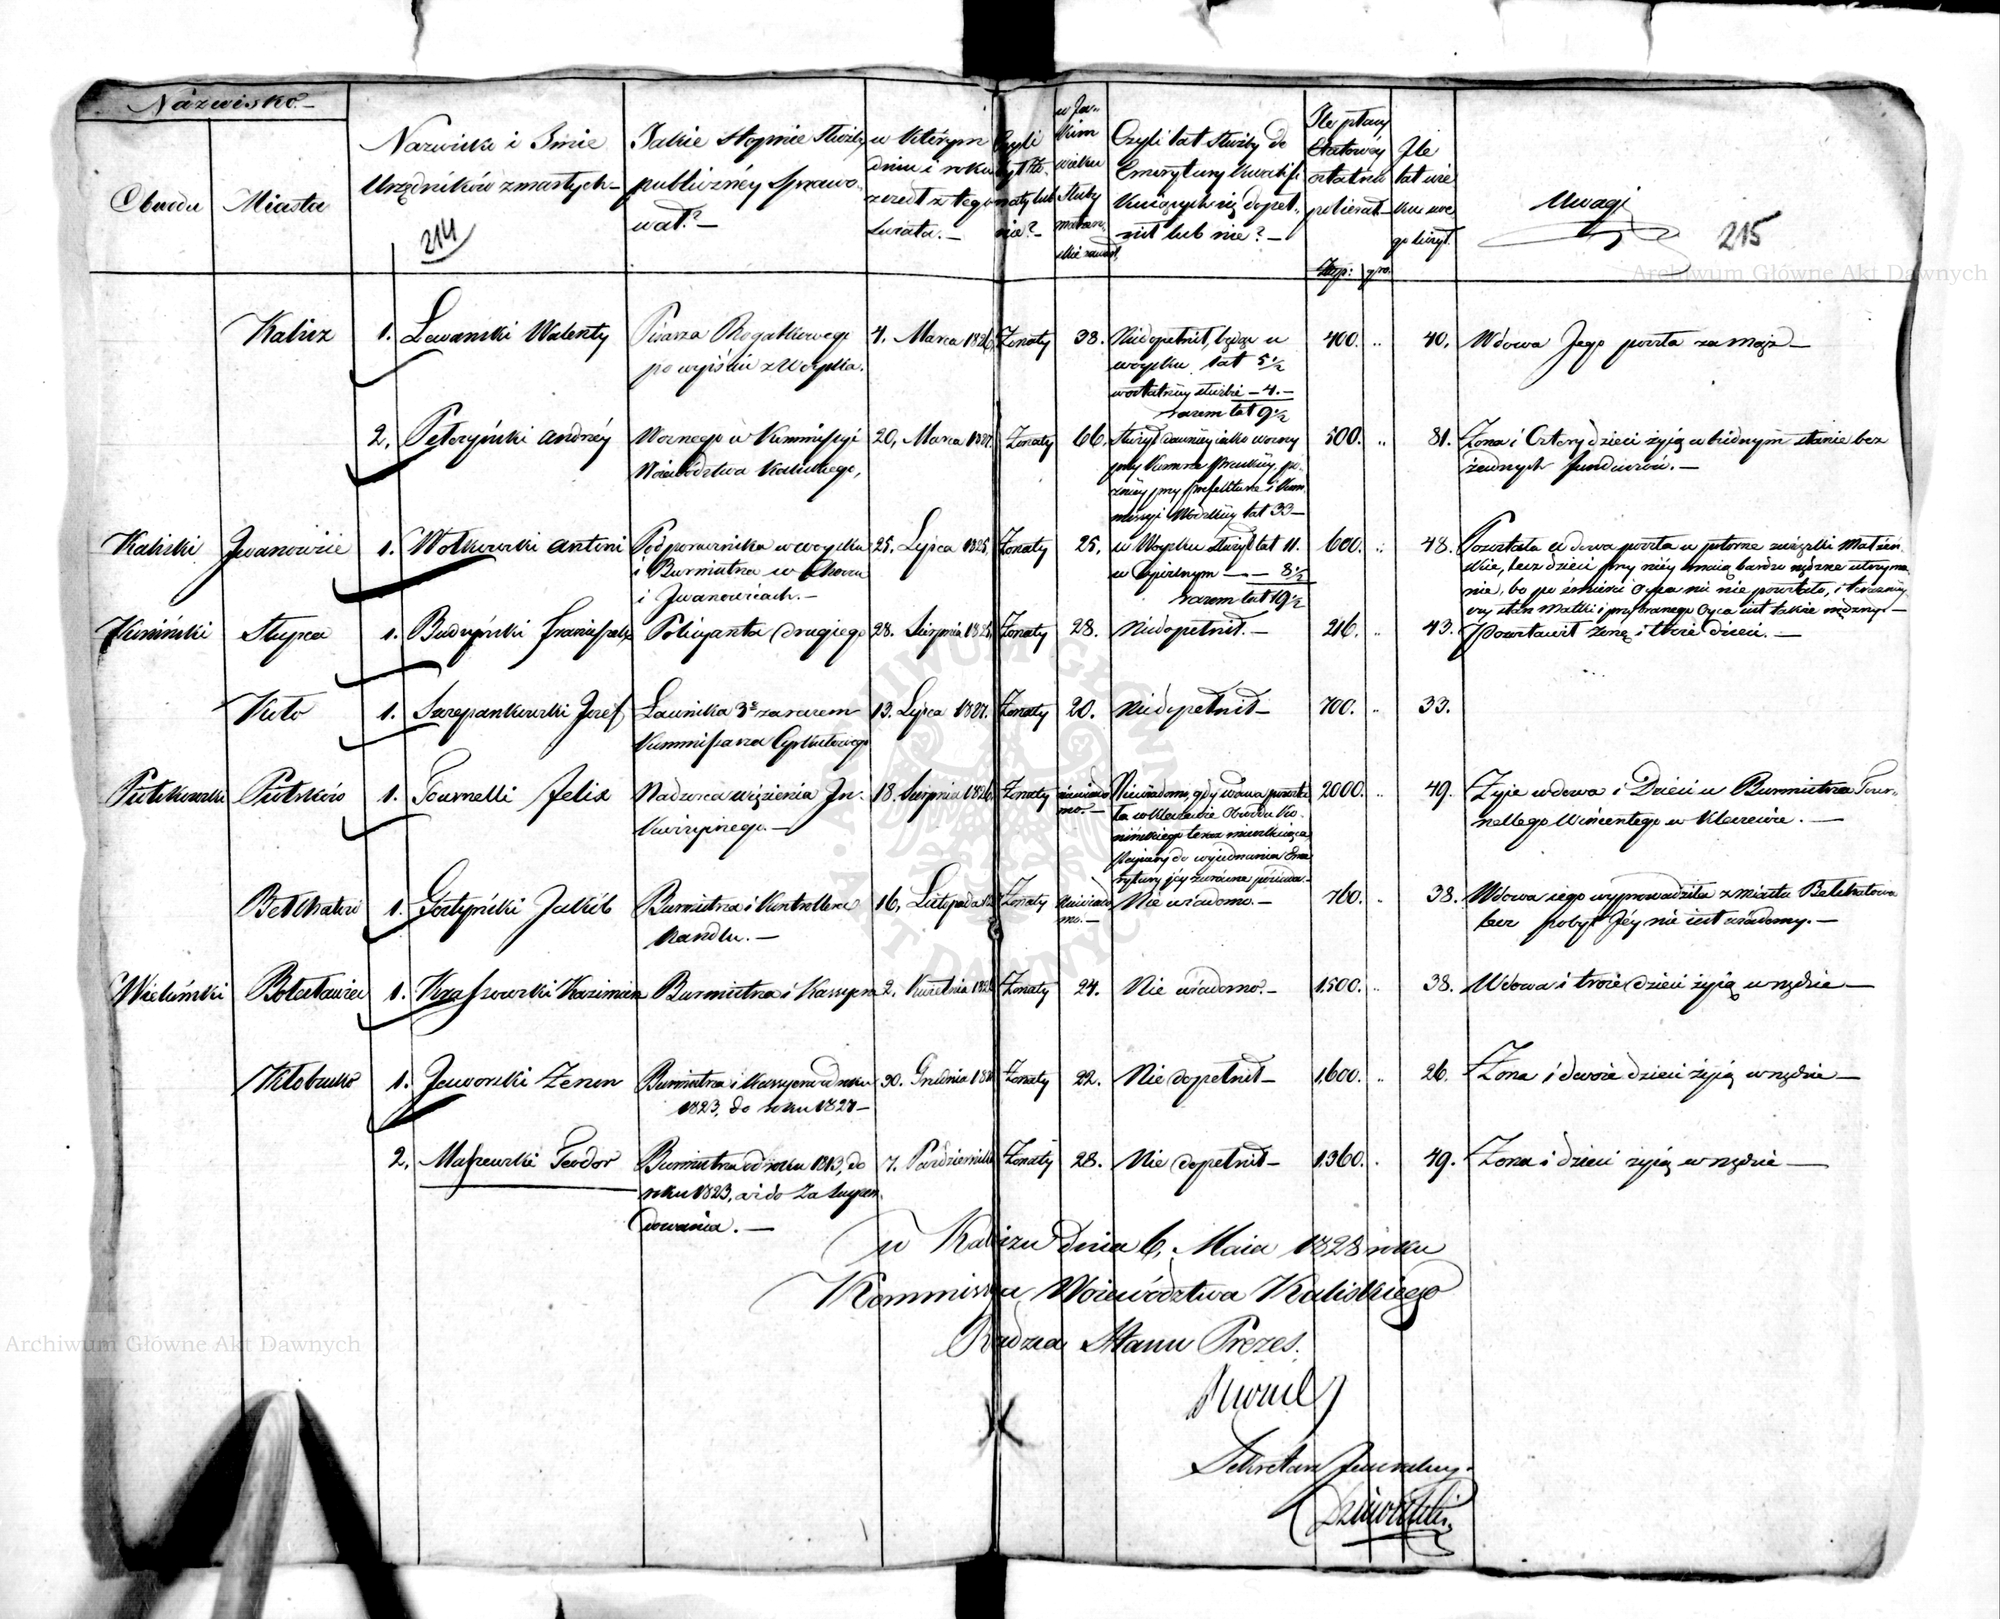 Nazwisko.—
Obwodu
Miasta
Nazwisko i Imie
Urzędników zmarłych—
214
Jakie stopnie Służby
publiczney Sprawo-
wał?—
w którym
dniu i roku
zszedł z tego
świata.—
Czyli
był żo-
naty lub
nie?—
w Ja-
kim
wieku
Śluby
małżeń
skie zawarł
Czyli lat Służby do
Emerytury kwalifi-
kuiących się dopeł-
nił lub nie?—
Ile płacy
Etatowéy
ostatnio
pobierał—
Złłp: gro.
Ile
lat wie
ku swe
go liczył.
Uwagi
215
Archiwum Główne Akt Dawnych
Kalisz
1. Lewański Walenty
Pisarza Rogatkowego
po wyjściu z Woyska.
4. Marca 1826.
Żonaty
38.
Niedopełnił, będąc w
woysku lat 5 1/2
w ostatniey służbie — 4.—
razem lat 9 1/2
400. "
40.
Wdowa Jego poszła za mąż—
2. Petczyński Andrzéy
Woznego w Kommissyi
Województwa Kaliskiego,
20, Marca 1827.
Żonaty
66.
służył dawniey iako wozny
przy Kamerze Pruskiey, pó-
zniey przy Prefekturze i Kom
missyi Wdzkiey lat 33—
500. "
81.
Żona i Cztery dzieci żyią w biednym stanie bez
żadnych funduszów.—
Kaliski
Iwanowice
1. Wołkowski Antoni
Podporucznika w woysku
i Burmistrza w
i Iwanowicach.—
25. Lipca 1825.
Żonaty
25.
w Woysku służył lat 11.
w Cywilnym — — 8 1/2
razem lat 19 1/2
600. "
48.
Pozostała wdowa poszła w ptorne związki Małżeń
skie, lecz dzieci przy niéy maią bardzo nędzne utrzyma
nie, bo po śmierci Oyca nic nie pozostało, i teraznieyszy
stan Matki i przybranego Oyca iest także mierny—
Koniński
Słupca
1. Budzyński Franciszek
Policyanta drugiego
28. Sierpnia 1825.
Żonaty
28.
Niedopełnił.—
216. "
43.
Pozostawił żonę i troie dzieci.—
Koło
1. Szczepankowski Józef
Ławnika 3° zarazem
Kommissarza Cyrkułowego
13. Lipca 1827.
Żonaty
20.
Niedopełnił—
700. "
33.
Piotrkowski
Piotrków
1. Tournelli Felix
Nadzorca więzienia In-
kwizycynego.—
18. Sierpnia 1826.
Żonaty
niewiado
mo.—
Niewiadomo, gdy wdowa pozosta
ła w Kleczewie Obwodu Ko-
nińskiego teraz mieszkaiąca
papiery do wyiednania Eme
rytury jéy zwrócone posiada.—
2000. "
49.
Żyie wdowa i Dzieci u Burmistrza Tour-
nellego Wincentego w Kleczewie.—
Bełchatów
1. Gołyński Jakób
Burmistrza i Kontrollera
Kandlu.—
16. Listopada
Żonaty
niewiado
mo.—
Nie wiadomo.—
760. "
38.
Wdowa iego wyprowadziła z miasta Bełchatowa
lecz pobyt Jéy nie iest wiadomy.—
Wieluński
Bolesławiec
1. Kraszewski Kazimierz
Burmistrza i Kassyera
2. Kwietnia
Żonaty
24.
Nie wiadomo.—
1,500. "
38.
Wdowa i troie dzieci żyią w nędzie—
Kłobucko
1. Jaworski Zenon
Burmistrza i Kassyera od roku
1823, do roku 1827—
30. Grudnia
Żonaty
22.
Nie dopełnił—
1,600. "
26.
Żona i dwoie dzieci żyią w nędzie—
2. Maszewski Teodor
Burmistrza od roku 1813, do
roku 1823, aż do Zasuspen-
dowania.—
7. Października
Żonaty
28.
Nie dopełnił—
1,360. "
49.
Żona i dzieci żyią w nędzie—
w Kaliszu dnia 6, Maia 1828 roku
Kommissya Woiewództwa Kaliskiego
Radzca Stanu Prezes.
Sekretarz Jeneralny.
Archiwum Główne Akt Dawnych